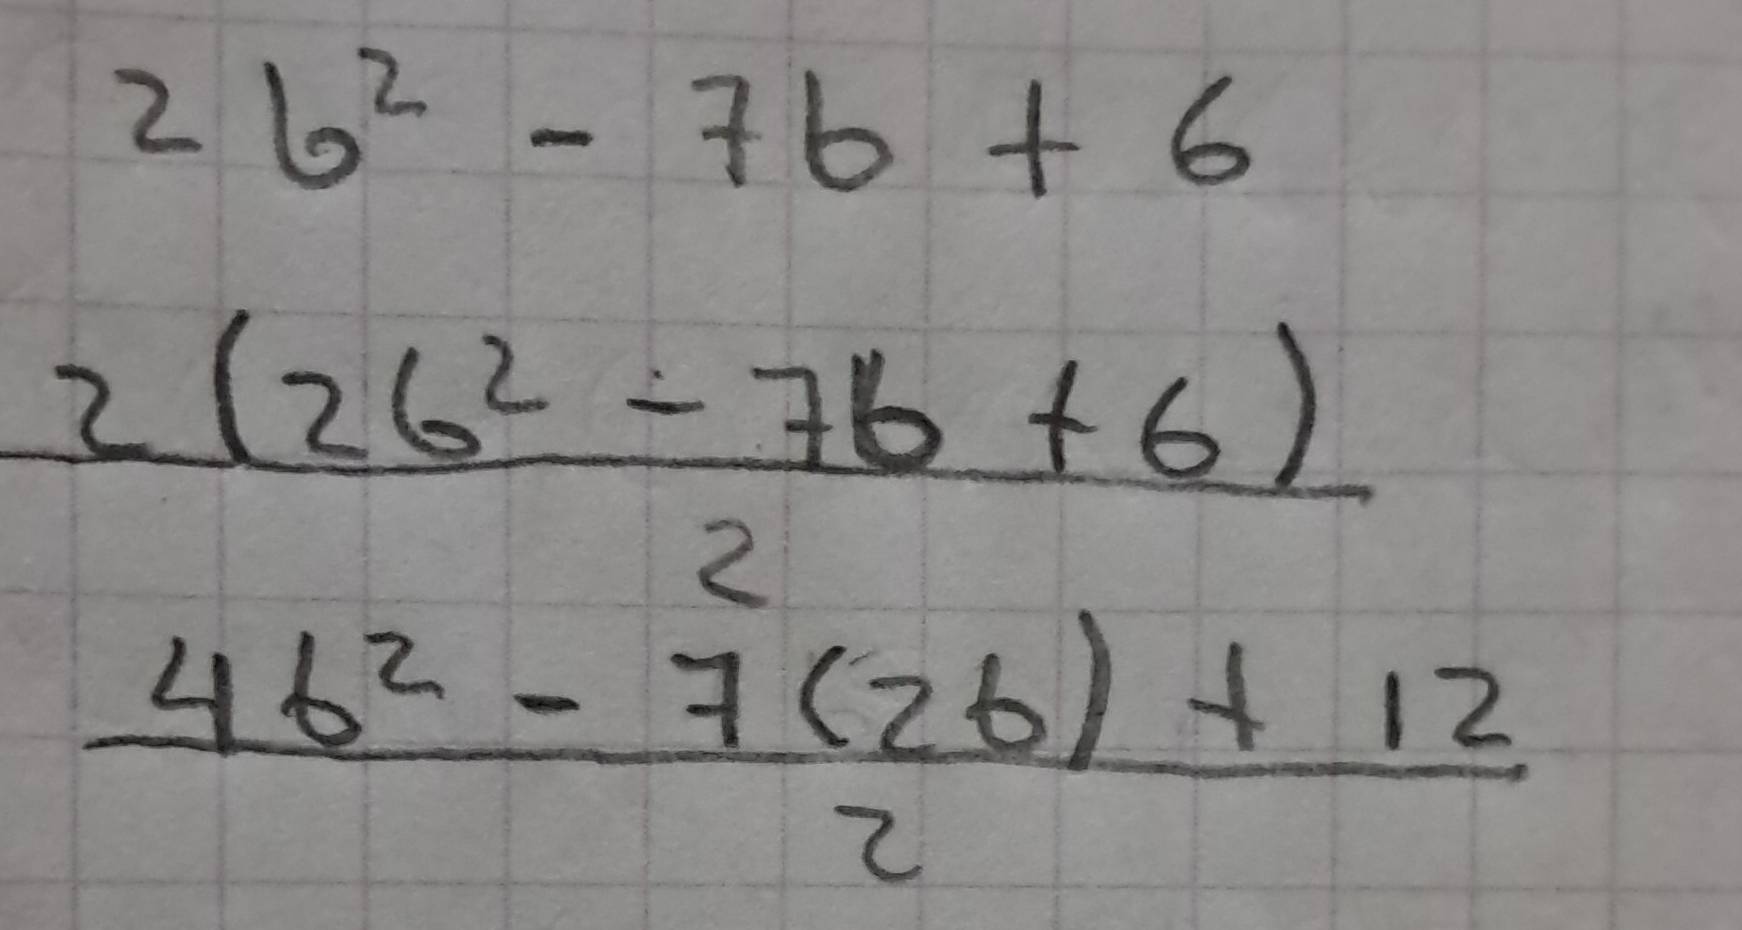 2b² - 7b + 6
2(2b² - 7b + 6)
2
4b² - 7(2b) + 12
2